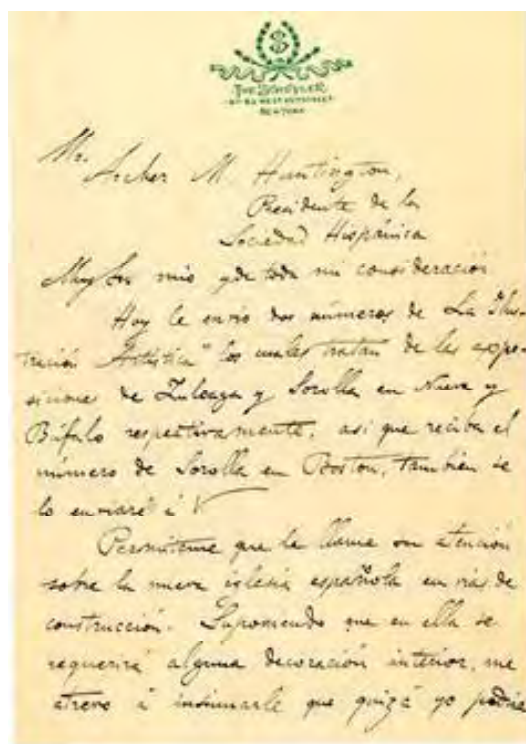 S
THE SCHUYLER
WEST 45TH STREET
NEW YORK
Mr.
Archer M. Huntington,
Presidente de la
Sociedad Hispánica
Muy Sr mio y de toda mi consideración
Hoy le envio dos números de "La Ilus-
tración Artística" los cuales tratan de las expo-
siciones de Zuloaga y Sorolla en Nueva y
Búfalo respectivamente, asi que reciba el
número de Sorolla en Boston, también se
lo enviaré á V
Permitame que le llame su atención
sobre la nueva iglesia española en vías de
construcción. Suponiendo que en ella se
requerirá alguna decoración interior, me
atrevo á insinuarle que quizá yo podria